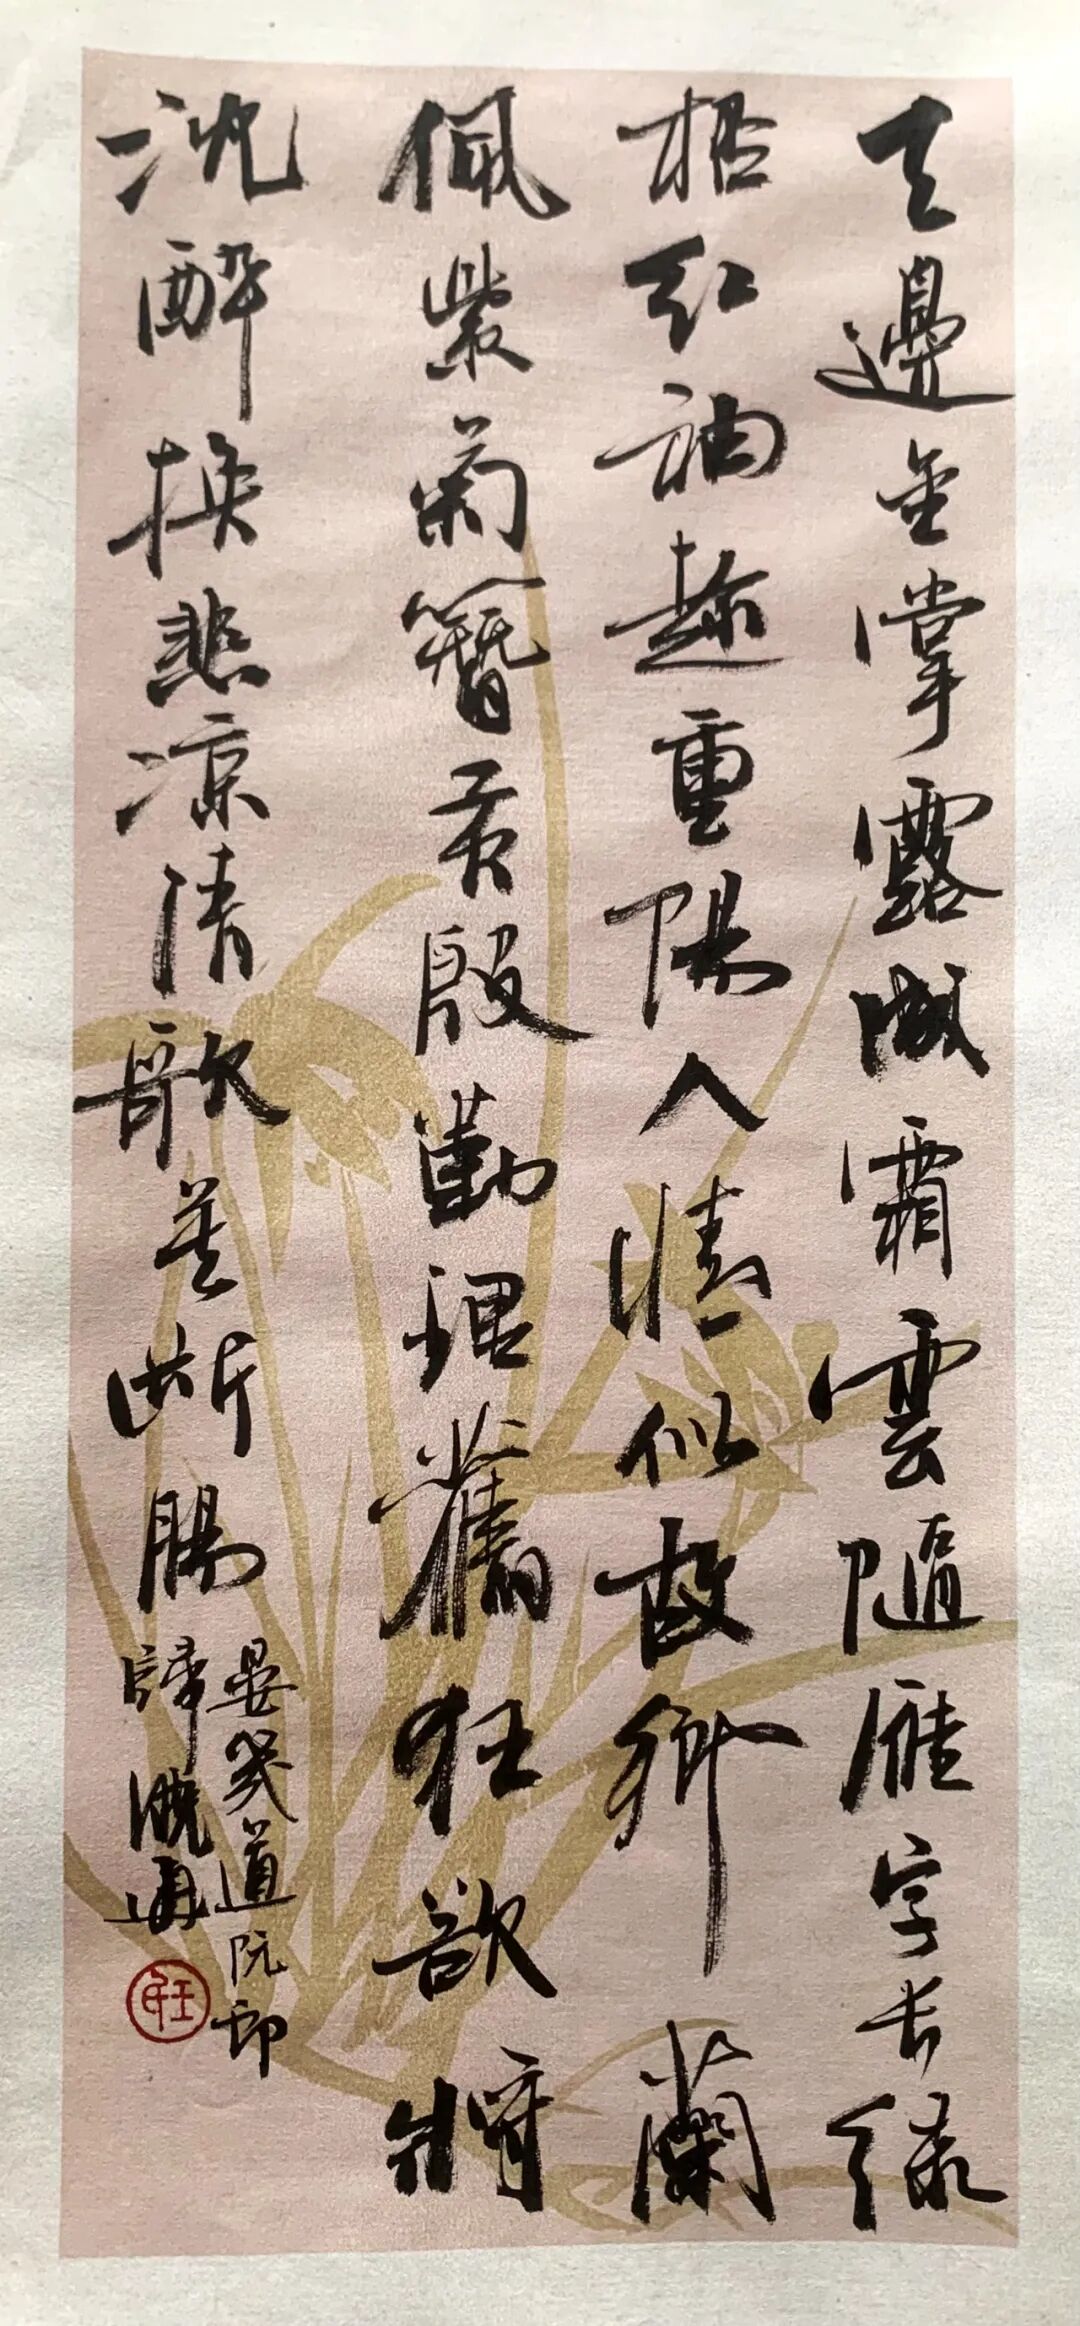 天邊金掌露成霜雲隨雁字長綠
桮紅袖趂重陽人情似故鄉蘭
佩紫菊簪黃殷勤理舊狂欲將
沈醉換悲涼清歌莫斷腸
晏幾道阮郎
歸